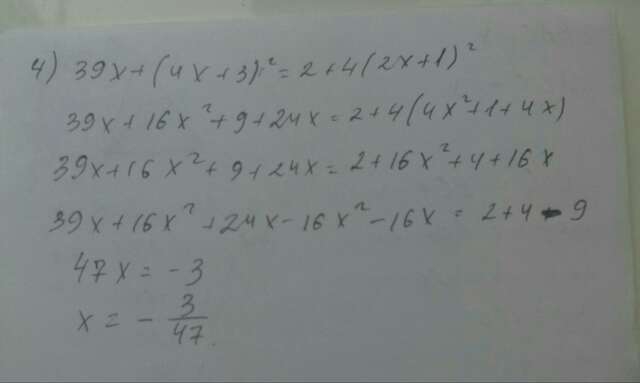 4) 39x+(4x+3)²=2+4(2x+1)²
39x+16x²+9+24x=2+4(4x²+1+4x)
39x+16x²+9+24x=2+16x²+4+16x
39x+16x²+24x-16x²-16x=2+4-9
47x=-3
x=-3/47.